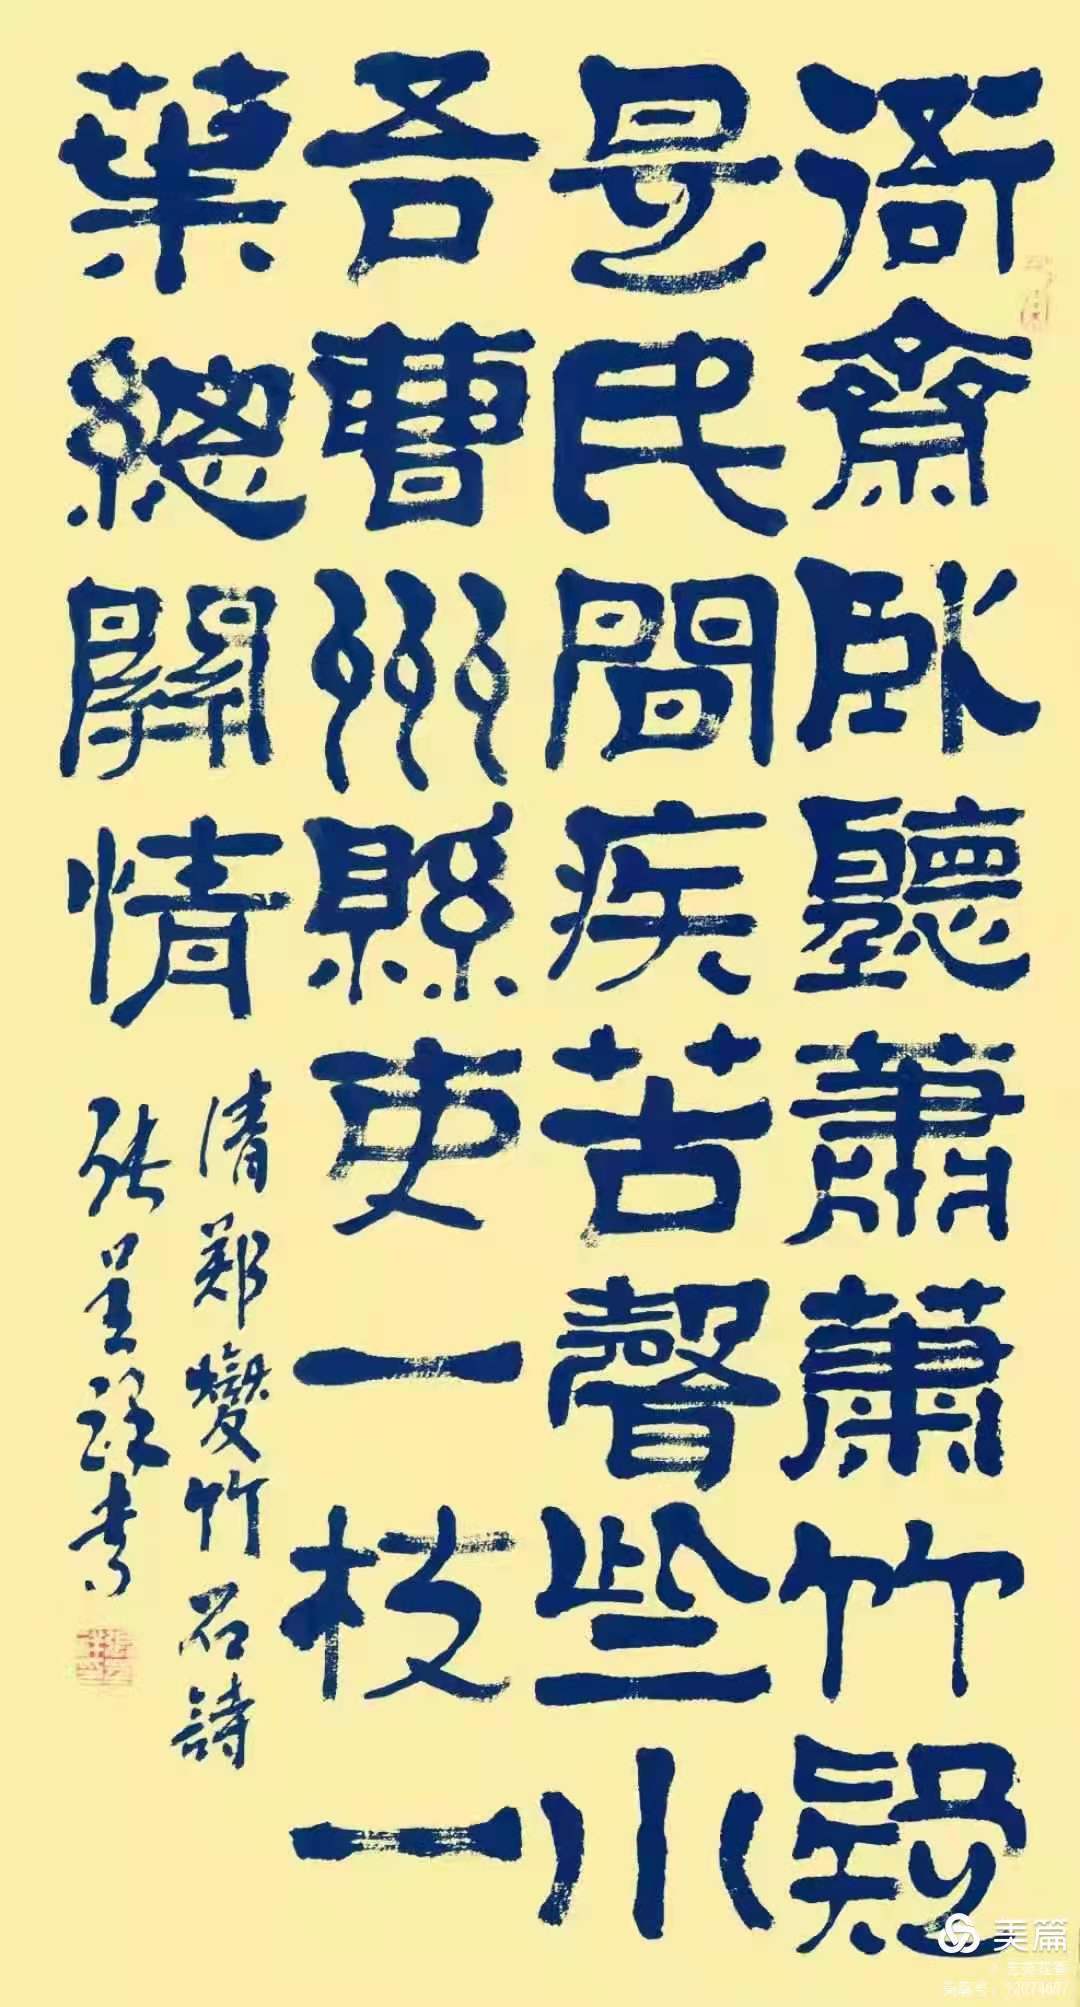 衙齋卧聽蕭蕭竹疑
是民間疾苦聲些小
吾曹州縣吏一枝一
葉總關情
清鄭燮竹石詩
張呈祥書
美篇